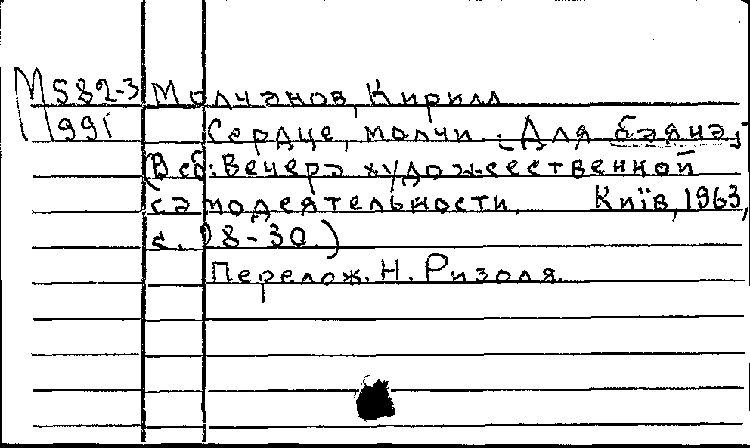 М582-3 Молчанов, Кирилл
991 Сердце, молчи. [Для баяна]
(В сб: Вечера художественной
самодеятельности. Київ, 1963,
с. 28-30.)
Перелож. Н. Ризоля.